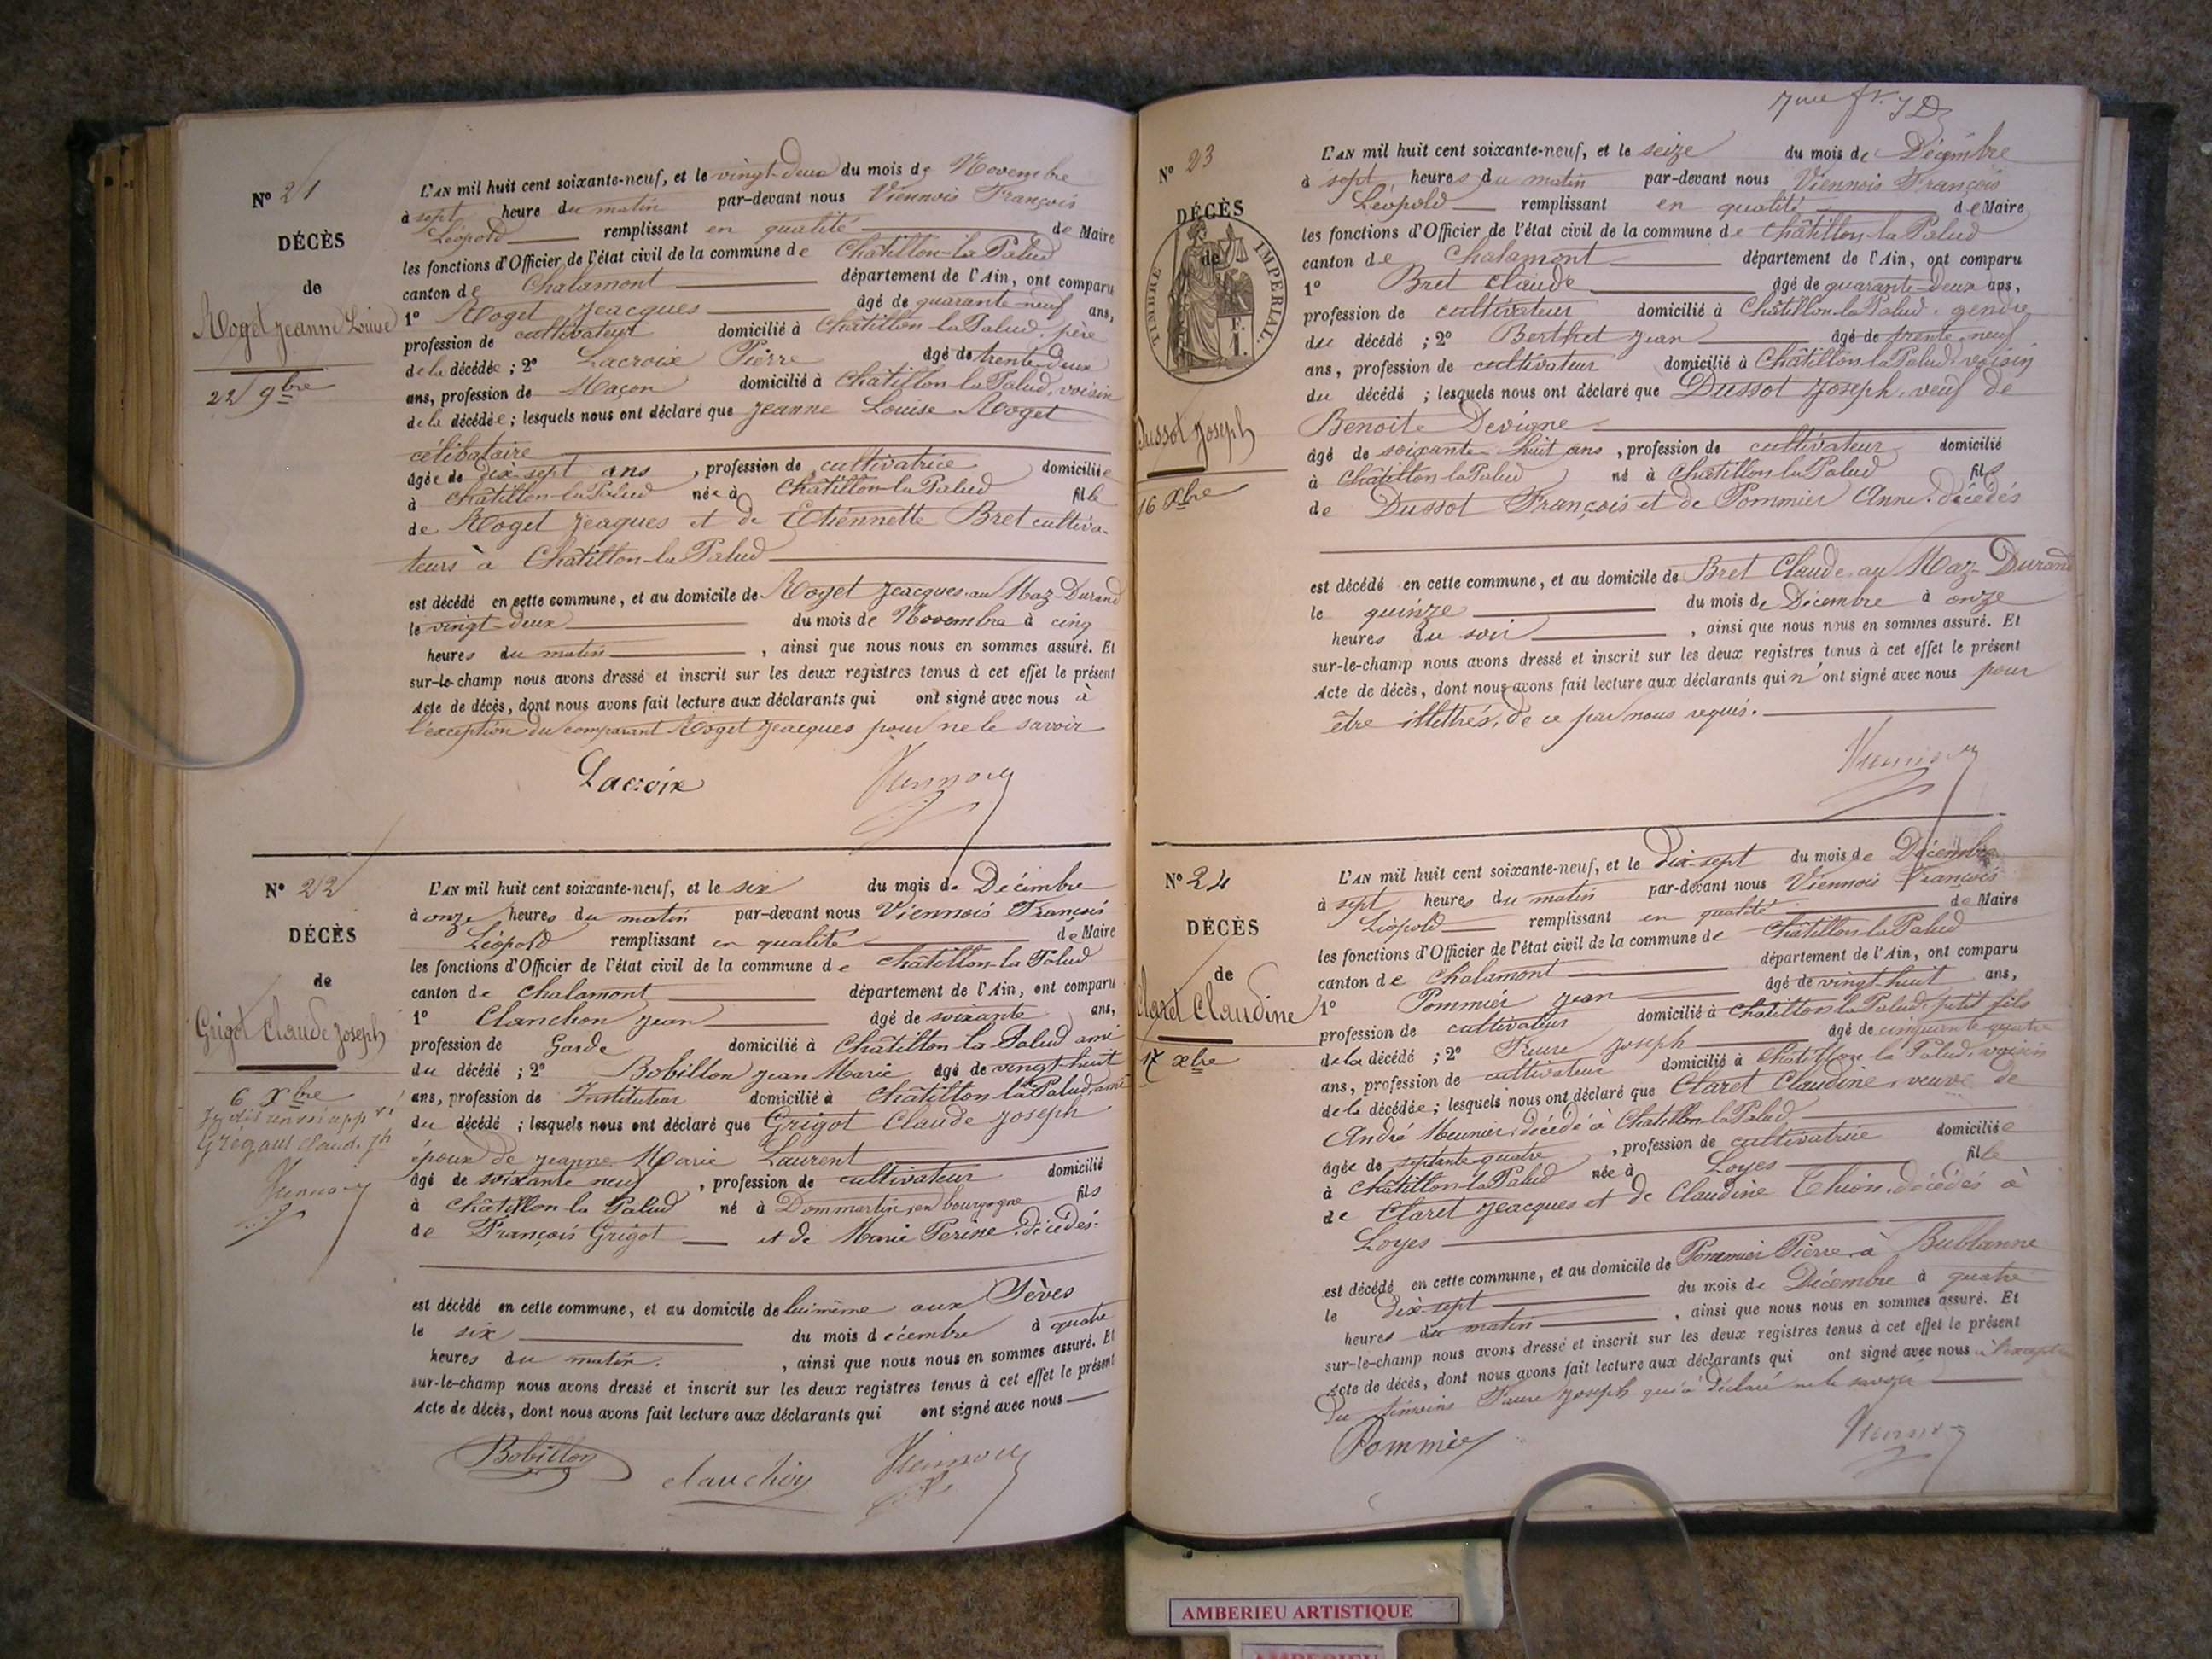 N° 21
DÉCÈS
de
Roget Jeanne Louise
22 9bre
L'AN mil huit cent soixante-neuf, et le vingt-deux du mois de Novembre
à sept heure du matin par-devant nous Viennois François
Léopold remplissant en qualité de Maire
les fonctions d'Officier de l'état civil de la commune de Châtillon-la-Palud
canton de Chalamont département de l'Ain, ont comparu
1° Roget Jeacques âgé de quarante-neuf ans,
profession de cultivateur domicilié à Châtillon-la-Palud, père
de la décédée ; 2° Lacroix Pierre âgé de trente-deux
ans, profession de Maçon domicilié à Châtillon-la-Palud, voisin
de la décédée ; lesquels nous ont déclaré que Jeanne Louise Roget
célibataire
âgée de dix-sept ans , profession de cultivatrice domiciliée
à Châtillon-la-Palud née à Châtillon-la-Palud fille
de Roget Jeaques et de Etiennette Bret cultiva-
teurs à Châtillon-la-Palud
est décédé en cette commune, et au domicile de Roget Jeacques au Maz-Durand
le vingt-deux du mois de Novembre à cinq
heures du matin , ainsi que nous nous en sommes assuré. Et
sur-le-champ nous avons dressé et inscrit sur les deux registres tenus à cet effet le présent
Acte de décès, dont nous avons fait lecture aux déclarants qui ont signé avec nous à
l'exception du comparant Roget Jeacques pour ne le savoir
Lacroix Viennois
N° 22
DÉCÈS
de
Grigot Claude Joseph
6 Xbre
Viennois
L'AN mil huit cent soixante-neuf, et le six du mois de Décembre
à onze heures du matin par-devant nous Viennois François
Léopold remplissant en qualité de Maire
les fonctions d'Officier de l'état civil de la commune de Châtillon-la Palud
canton de Chalamont département de l'Ain, ont comparu
1° Clanchon Jean âgé de soixante ans,
profession de Garde domicilié à Châtillon la Palud ami
du décédé ; 2° Bobillon Jean Marie âgé de vingt-huit
ans, profession de Instituteur domicilié à Châtillon la Palud, ami
du décédé ; lesquels nous ont déclaré que Grigot Claude Joseph
époux de Jeanne Marie Laurent
âgé de soixante neuf , profession de cultivateur domicilié
à Châtillon la Palud né à Dommartin, en bourgogne fils
de François Grigot et de Marie Perine. décédés.
est décédé en cette commune, et au domicile de lui même aux Sèves
le six du mois décembre à quatre
heures du matin. , ainsi que nous nous en sommes assuré. Et
sur-le-champ nous avons dressé et inscrit sur les deux registres tenus à cet effet le présent
Acte de décès, dont nous avons fait lecture aux déclarants qui ont signé avec nous
Bobillon clauchon Viennois
N° 23
DÉCÈS
de
TIMBRE IMPÉRIAL.
Dussot Joseph
16 Xbre
L'AN mil huit cent soixante-neuf, et le seize du mois de Décembre
à sept heures du matin par-devant nous Viennois François
Léopold remplissant en qualité de Maire
les fonctions d'Officier de l'état civil de la commune de Châtillon-la Palud
canton de Chalamont département de l'Ain, ont comparu
1° Bret Claude âgé de quarante-deux ans,
profession de cultivateur domicilié à Châtillon-la Palud, gendre
du décédé ; 2° Berthet Jean âgé de trente-neuf
ans, profession de cultivateur domicilié à Châtillon-la-Palud voisin
du décédé ; lesquels nous ont déclaré que Dussot Joseph, veuf de
Benoite Devigne
âgé de soixante-huit ans , profession de cultivateur domicilié
à Châtillon-la Palud né à Châtillon-la Palud fils
de Dussot François et de Pommier Anne. décédés
est décédé en cette commune, et au domicile de Bret Claude au Maz-Durand
le quinze du mois de Décembre à onze
heures du soir , ainsi que nous nous en sommes assuré. Et
sur-le-champ nous avons dressé et inscrit sur les deux registres tenus à cet effet le présent
Acte de décès, dont nous avons fait lecture aux déclarants qui n'ont signé avec nous pour
être illettrés, de ce par nous requis.
Viennois
N° 24
DÉCÈS
de
Claret Claudine
17 xbre
L'AN mil huit cent soixante-neuf, et le dix-sept du mois de Décembre
à sept heures du matin par-devant nous Viennois François
Léopold remplissant en qualité de Maire
les fonctions d'Officier de l'état civil de la commune de Châtillon-la Palud
canton de Chalamont département de l'Ain, ont comparu
1° Pommier Jean âgé de vingt-huit ans,
profession de cultivateur domicilié à Châtillon la Palud, petit fils
de la décédé ; 2° Faure Joseph âgé de cinquante quatre
ans, profession de cultivateur domicilié à Châtillon la Palud, voisin
de la décédée ; lesquels nous ont déclaré que Claret Claudine, veuve de
André Meunier, décédé à Châtillon-la Palud
âgée de septante-quatre , profession de cultivatrice domiciliée
à Châtillon-la Palud née à Loyes fille
de Claret Jeacques et de Claudine Thion. décédés à
Loyes
est décédé en cette commune, et au domicile de Pommier Pierre à Bublanne
le dix-sept du mois de Décembre à quatre
heures du matin , ainsi que nous nous en sommes assuré. Et
sur-le-champ nous avons dressé et inscrit sur les deux registres tenus à cet effet le présent
Acte de décès, dont nous avons fait lecture aux déclarants qui ont signé avec nous
du témoins Faure Joseph qui a déclaré ne le savoir
Pommier Viennois
AMBERIEU ARTISTIQUE
AMBERIEU